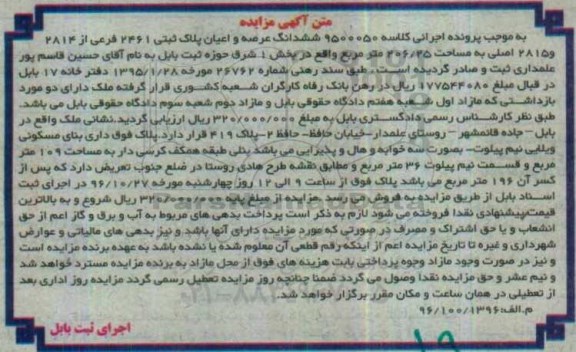 متن آگهی مزایده
به موجب پرونده اجرائی کلاسه ۹۵۰۰۰۵۰ ششدانگ عرصه و اعیان پلاک ثبتی ۲۴۶۱ فرعی از ۲۸۱۴
و۲۸۱۵ اصلی به مساحت ۲۰۶/۲۵ متر مربع واقع در بخش ۱ شرق حوزه ثبت بابل به نام آقای حسین قاسم پور
علمداری ثبت و صادر گردیده است طبق سند رهنی شماره ۲۶۷۶۲ مورخه ۱۳۹۵/۱/۲۸ دفتر خانه ۱۷ بابل
در قبال مبلغ ۱۷۷۵۴۴۰۸۰ ریال در رهن بانک رفاه کارگران شعبه کشوری قرار گرفته ملک دارای دو مورد
بازداشتی که مازاد اول شعبه هفتم دادگاه حقوقی بابل و مازاد دوم شعبه سوم دادگاه حقوقی بابل می باشد.
طبق نظر کارشناس رسمی دادگستری بابل به مبلغ ۳۲۰/۰۰۰/۰۰۰ ریال ارزیابی گردید.نشانی ملک واقع در
بابل– جاده قائمشهر – روستای علمدار–خیابان حافظ– حافظ ۲– پلاک ۴۱۹ قرار دارد.پلاک فوق داری بنای مسکونی
ویلایی نیم پیلوت– بصورت سه خوابه و هال و پذیرایی می باشد بنای طبقه همکف کرسی دار به مساحت ۱۰۹ متر
مربع و قسمت نیم پیلوت ۳۶ متر مربع و مطابق نقشه طرح هادی روستا در ضلع جنوب تعریض دارد که پس از
کسر آن ۱۹۶ متر مربع می باشد پلاک فوق از ساعت ۹ الی ۱۲ روز چهارشنبه مورخه ۹۶/۱۰/۲۷ در اجرای ثبت
اسناد بابل از طریق مزایده به فروش می رسد .مزایده از مبلغ پایه ریال شروع و به بالاترین
قیمت پیشنهادی نقدا فروخته می شود لازم به ذکر است پرداخت بدهی های مربوط به آب و برق و گاز اعم از حق
انشعاب و یا حق اشتراک و مصرف در صورتی که مورد مزایده دارای آنها باشد و نیز بدهی های مالیاتی و عوارض
شهرداری و غیره تا تاریخ مزایده اعم از اینکه رقم قطعی آن معلوم شده یا نشده باشد به عهده برنده مزایده است
و نیز در صورت وجود مازاد وجوه پرداختی بابت هزینه های فوق از محل مازاد به برنده مزایده مسترد خواهد شد
و نیم عشر و حق مزایده نقدا وصول می گردد ضمنا چنانچه روز مزایده تعطیل رسمی گردد مزایده روز اداری بعد
از تعطیلی در همان ساعت و مکان مقرر برگزار خواهد شد.
م.الف:۹۶/۱۰۰/۱۳۹۶
اجرای ثبت بابل
۱۹